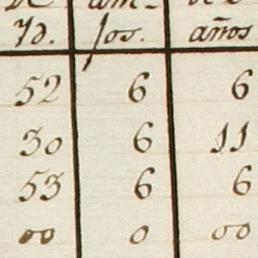 Yd. jos. años
52 6 6
30 6 11
53 6 6
00 0 00